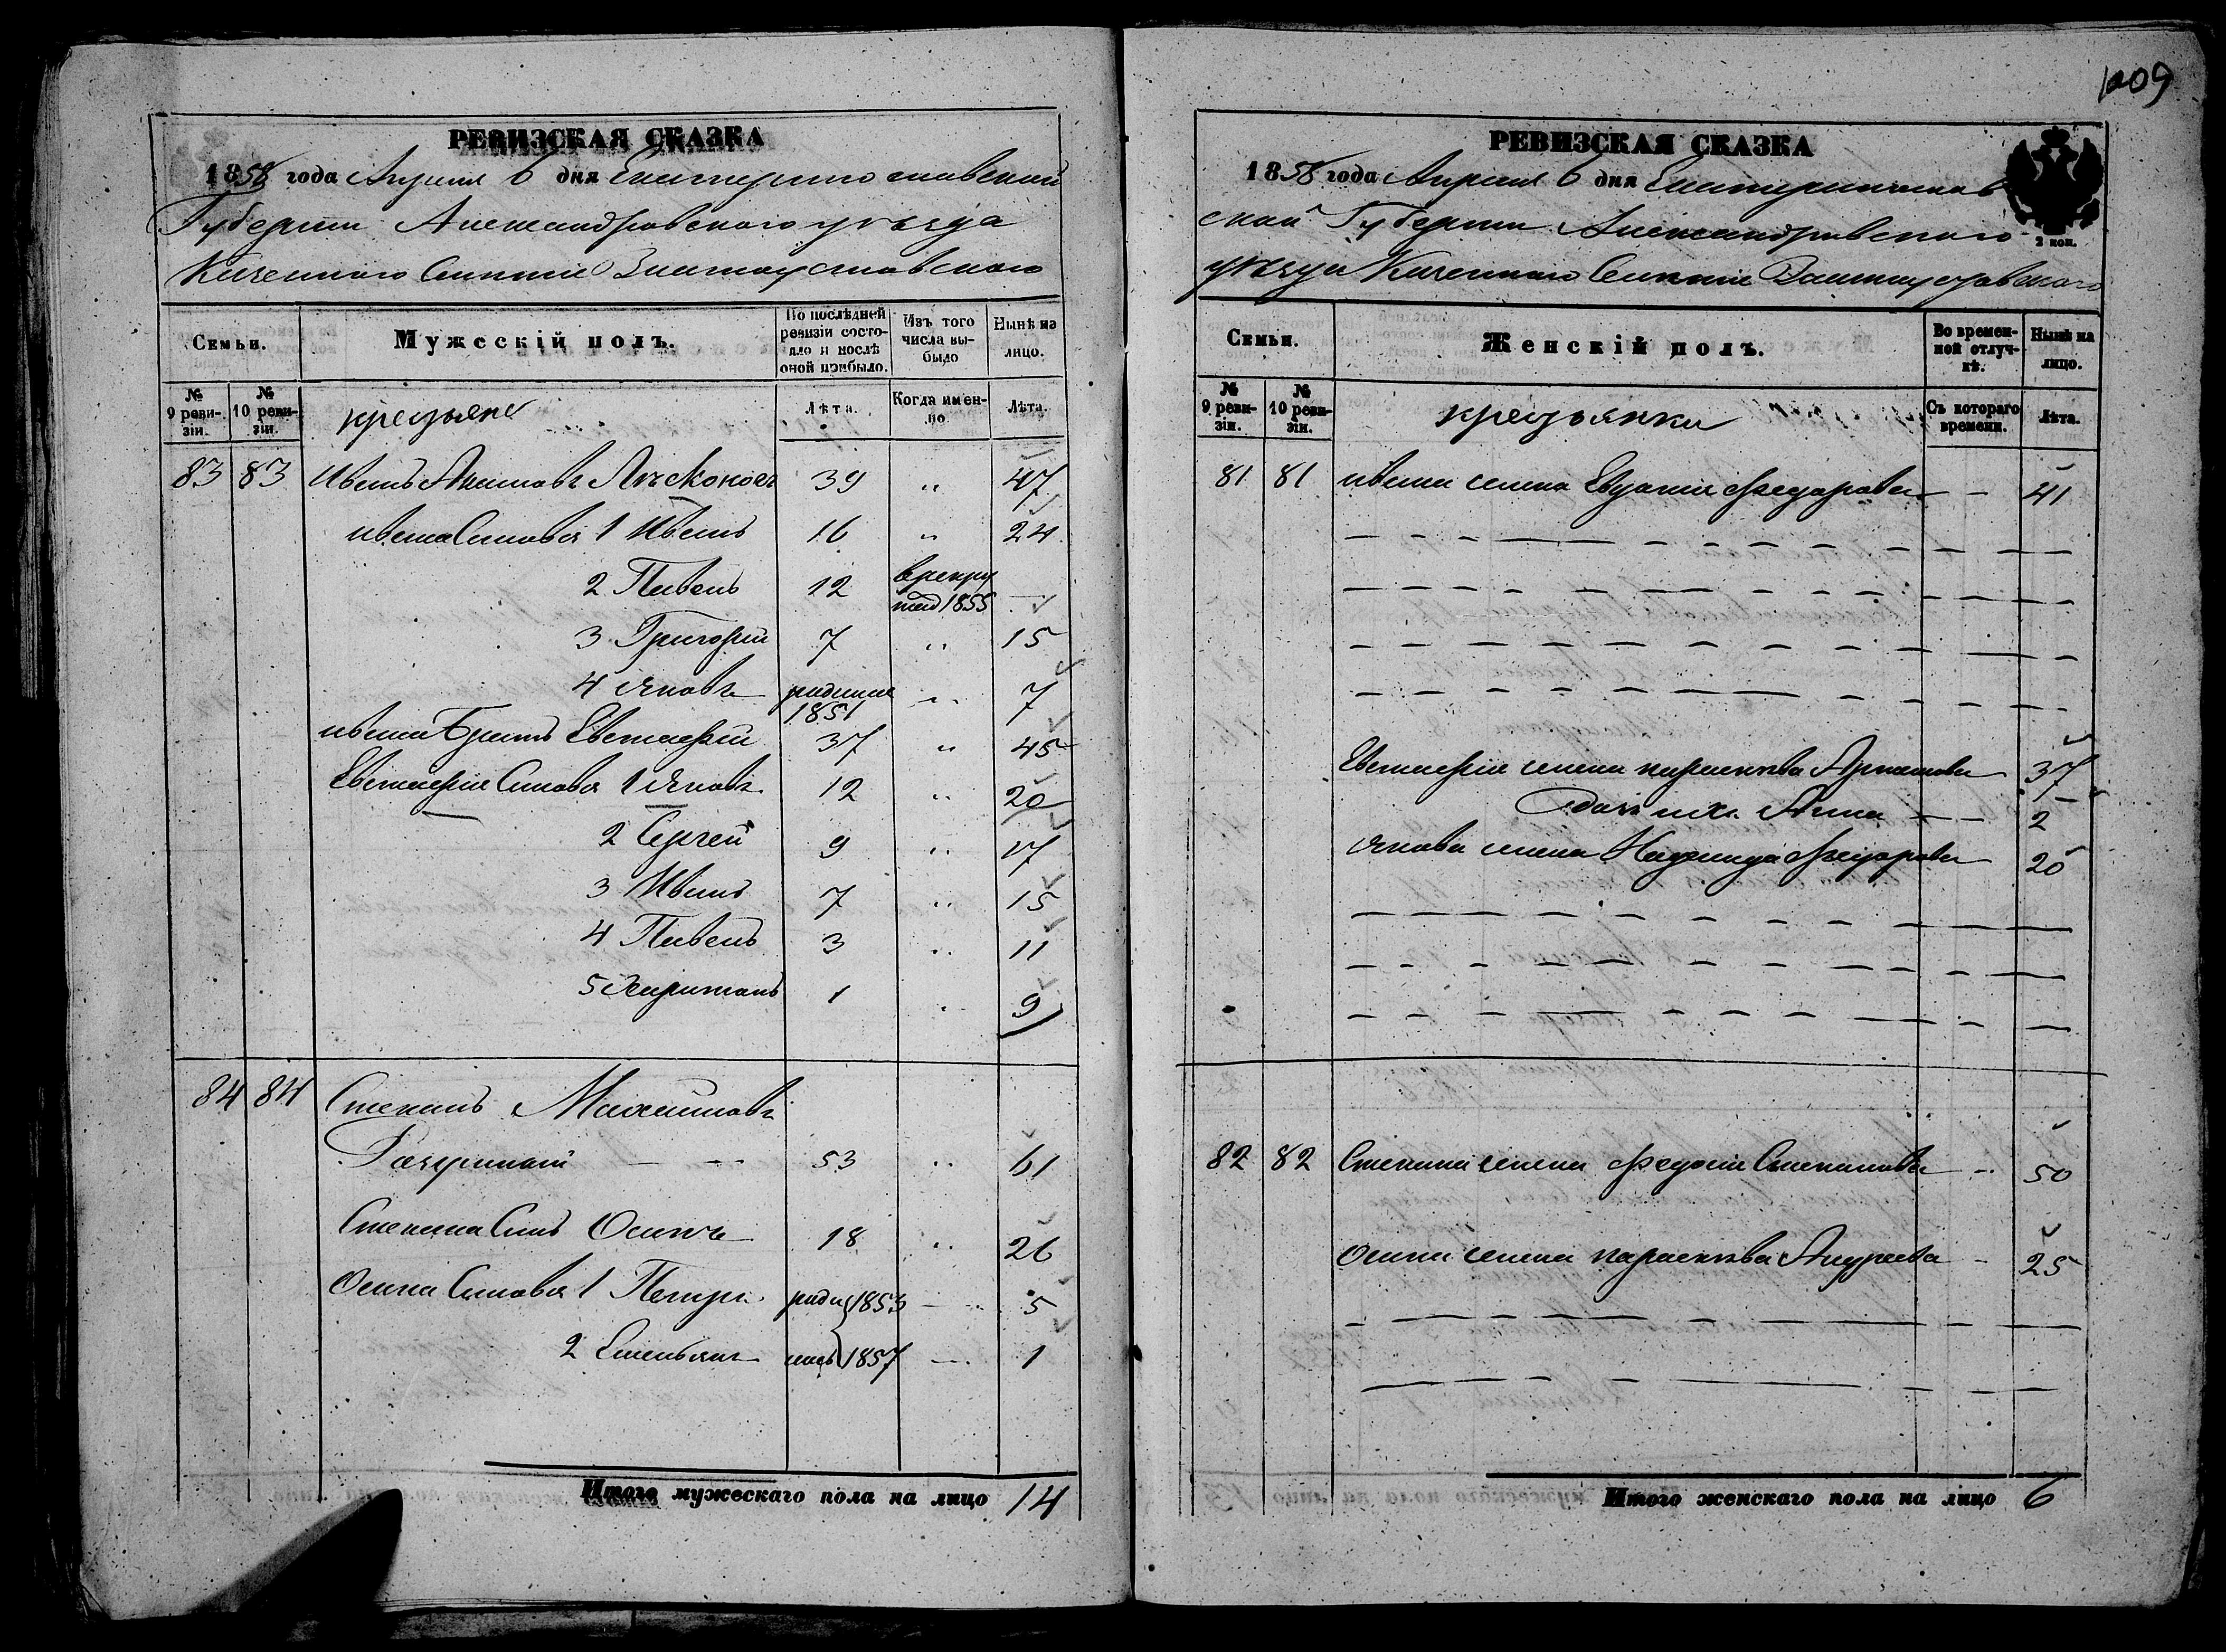 1209
РЕВИЗСКАЯ СКАЗКА
1858 года Апреля 6 дня Екатеринославской
Губернии Александровского уезда
Казенного Селения Златоустовского
Семьи.
Мужескій полъ.
По послѣдней ревизіи состояло и послѣ оной прибыло.
Изъ того числа выбыло
Нынѣ на лицо.
№ 9 ревизіи.
№ 10 ревизіи.
крестьяне
Лѣта.
Когда именно
Лѣта.
83 83 Иванъ Акимовъ 39 " 47
ивана Синовя 1 Иванъ 16 " 24
2 Павелъ 12 в рекруты 1855 —
3 Григорий 7 " 15
4 яковъ родился 1851 " 7
ивана Братъ Евстафий 37 " 45
Евстафия Синовя 1 яковъ 12 " 20
2 Сергей 9 " 17
3 Иванъ 7 " 15
4 Павелъ 3 " 11
5 Харитонъ 1 " 9
84 84 Степанъ Махайловъ
53 " 61
Степана Синъ Осипъ 18 " 26
Осипа Синовя 1 Петръ роди 1853 — 5
2 Емельянъ лись 1857 — 1
Итого мужескаго пола на лицо 14
РЕВИЗСКАЯ СКАЗКА
2 коп.
1858 года Апреля 6 дня Екатеринослав
ской Губернии Александровского
уезда Казенного Селения Златоустовского
Семьи.
Женскій полъ.
Во временной отлучкѣ.
Нынѣ на лицо.
№ 9 ревизіи.
№ 10 ревизіи.
крестьянки
Съ котораго времени.
Лѣта.
81 81 ивана жена Евдокия Федорова — 41
Евстафия жена парасковва Артамова — 37
дочь их Анна — 2
якова жена Надежда Федорова — 20
82 82 Степана жена Федосия Степанова — 50
Осипа жена парасковва Андреева — 25
Итого женскаго пола на лицо 6